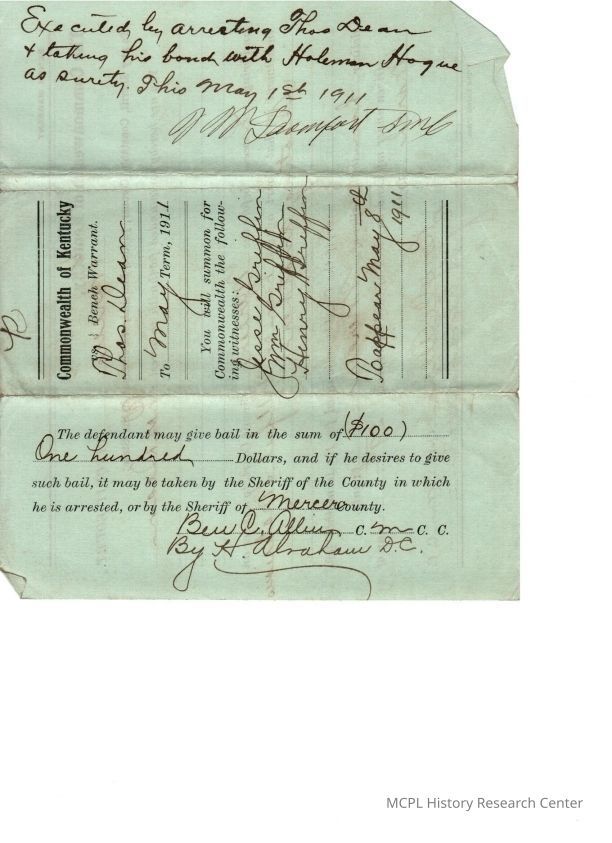 Executed by arresting Thos Dean
& taking his bond with Holeman Hogue
as surety. This May 1st 1911
Commonwealth of Kentucky
vs. Bench Warrant.
Thos Dean
To May Term, 1911
You will summon for
Commonwealth the follow-
ing witnesses:
Jesse Griffin
Wm Griffin
Henry Griffin
To appear May 8th
1911
The defendant may give bail in the sum of ($100)
One hundred Dollars, and if he desires to give
such bail, it may be taken by the Sheriff of the County in which
he is arrested, or by the Sheriff of Mercer County.
Ben C. Allin C. M C. C.
By H. Abraham D.C.
MCPL History Research Center